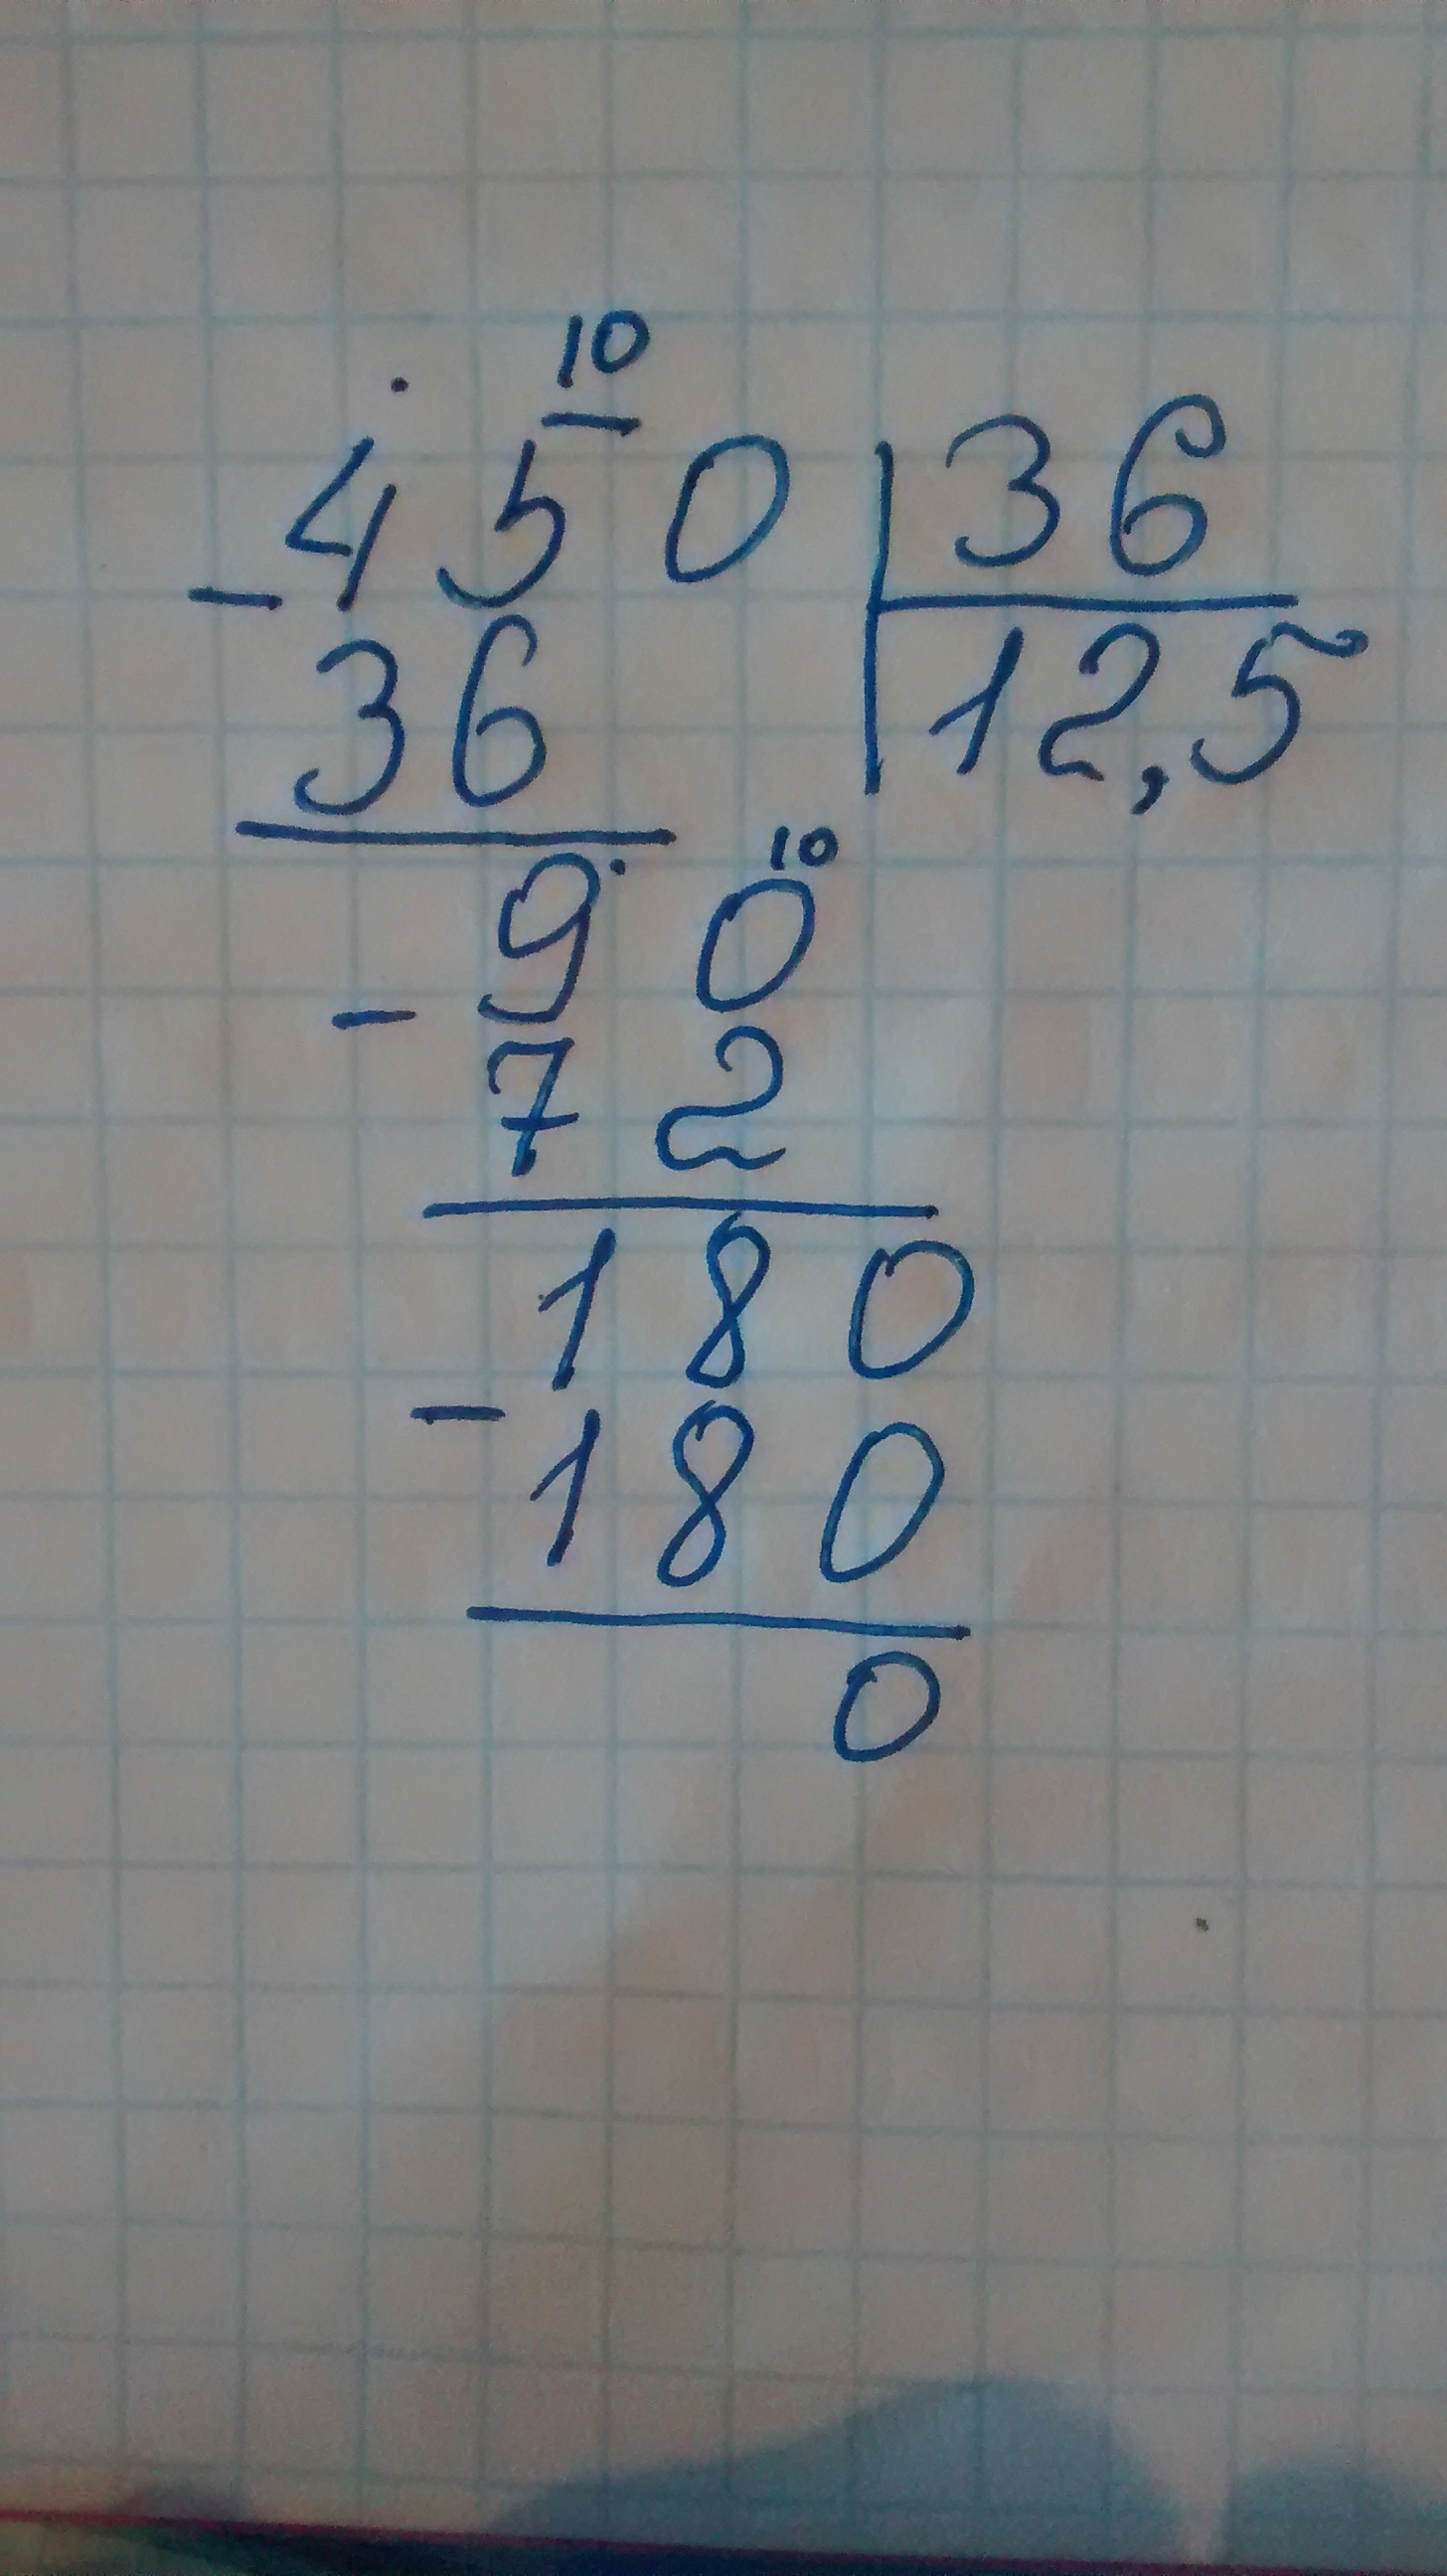 10
- 450 36
36 12,5
10
- 90
72
180
- 180
0